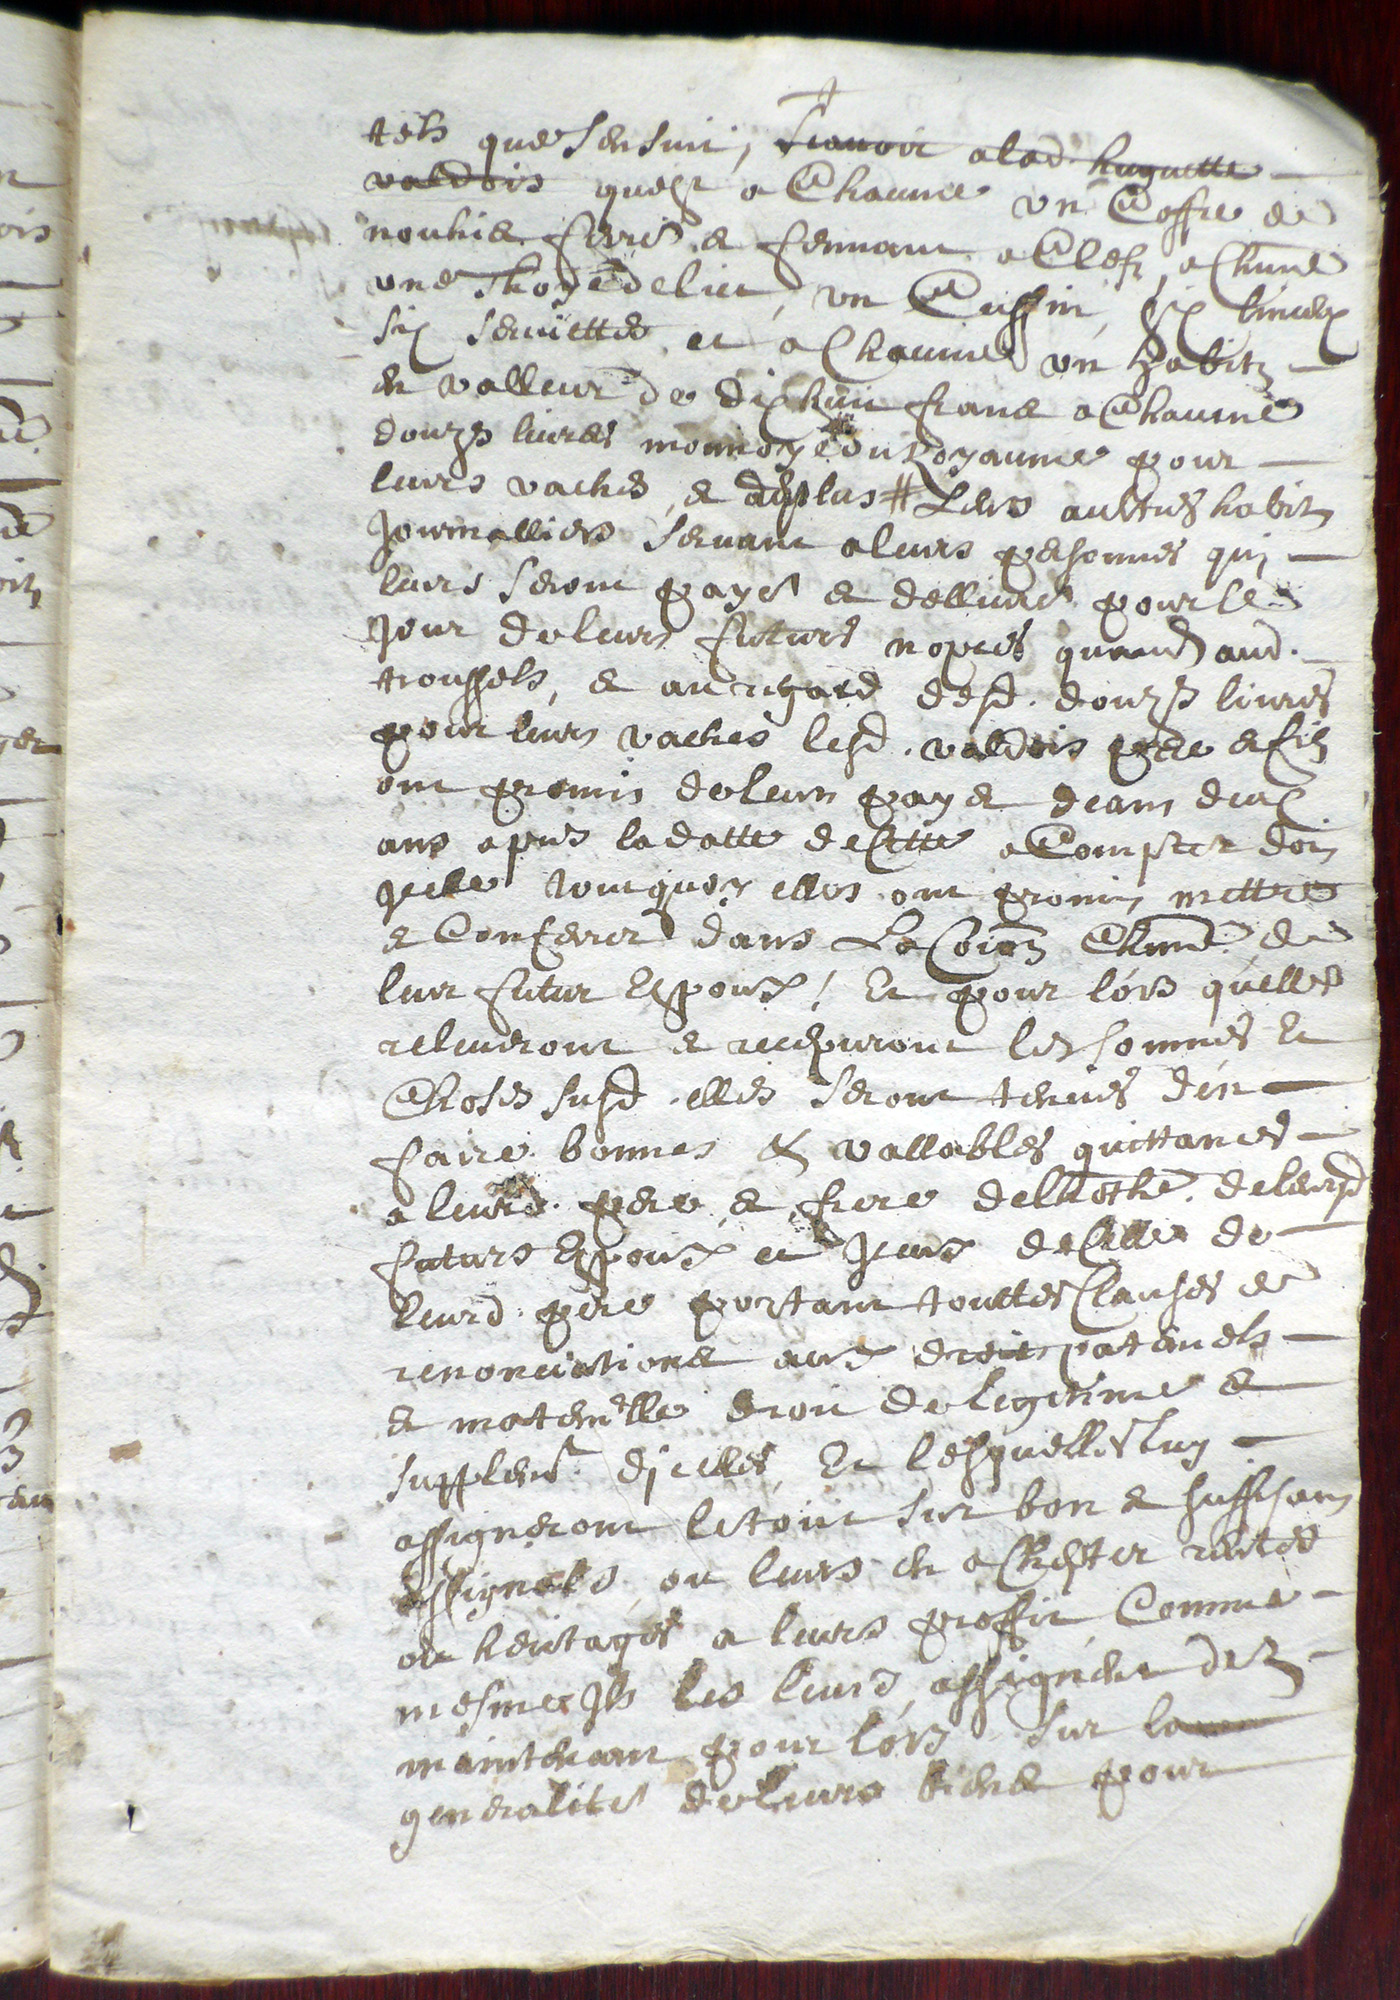 tels que sensuit, scavoir alad. huguette
valdois quest a Chaune un Coffre de
nouhier ferré et fermant a Clefz, a Chune
une de lict, un Cussin, six linceux
six serviettes et a Chaune un habit
en valleur de dixhuit frans a Chaune
douze livres monnoye du Royaume pour
leurs vaches, et deplus # Leurs aultres habits
Journalliers servant a leurs personnes qui
leurs seront payé et dellivré pour le
Jour de leurs futurs nopces quand aud.
troussels, et au regard desd. douze livres
pour leurs vaches lesd. valdois pere et filz
ont promis de leurs payer dans deux
ans apres la datte de Cette a Compter dois
Jcelle tout quoy elles ont promis mettre
et Conferer dans La Coion Chune de
leur futur Espoux / Et pour lors quelles
releveront et recepvront les sommes Et
Choses susd. elles seront tenues d'en
faire bonnes & vallables quittances
a leursd. pere et frere de lhothé de leursd
futurs Espoux et Jceux de Celle de
leurd. pere portant touttes Clauses de
renonciations aux droits paternels
et maternelle droit de legitime et
supplemt. d'jcelles, Et lesquelles luy
assigneront le tout sur bon et suffisans
assignals ou leurs en achepter rentes
ou heritages a leurs proffit Comme
mesme Jls les leurd. assignent dez
maintenant pour lors sur la
generalité de leurs biens pour